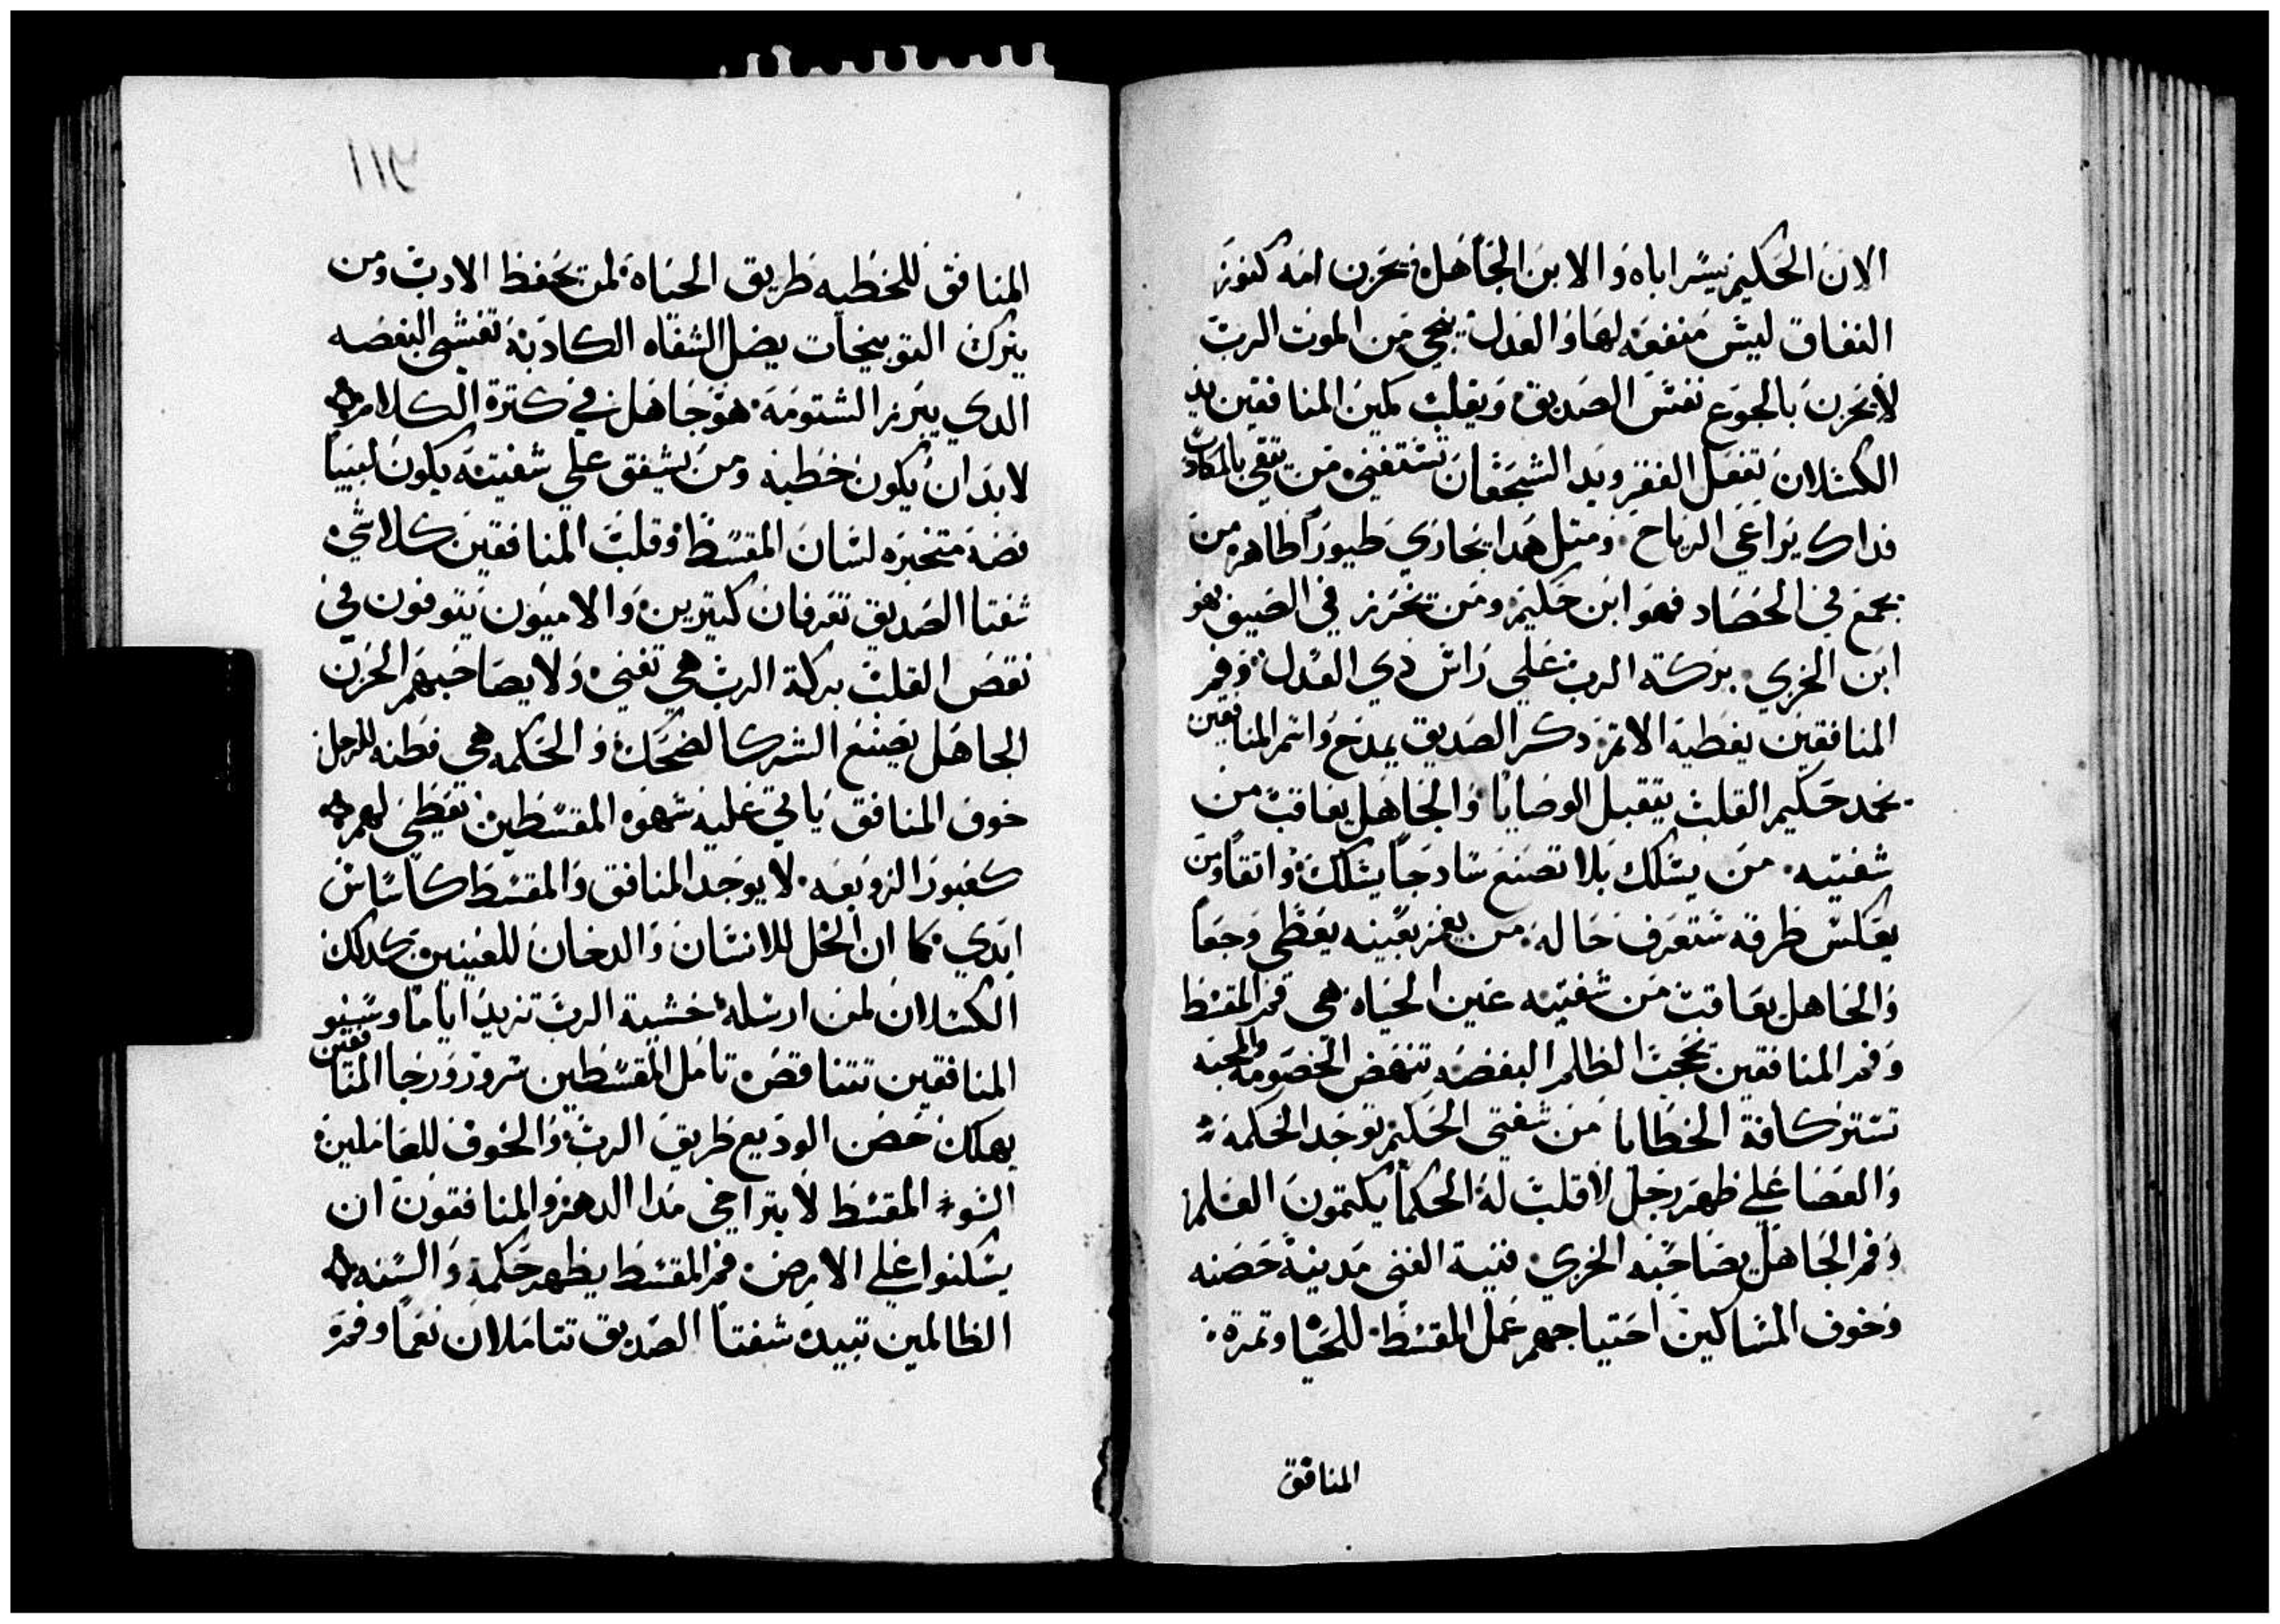 الابن الحكيم يسر اباه والابن الجاهل يحزن امه كنوز
النفاق ليس منفعه لها والعدل ينجي من الموت الرب
لا يحزن بالجوع نفس الصديق ويقلب كمين المنافقين يد
الكسلان تفعل الفقر ويد الشجعان تستغني من تقي بالمكادب
فداك يراعي الرياح ومتل هدا يجازي طيورا طاهره من
يجمع في الحصاد فهو ابن حكيم ومن يخرز في الصيف هو
ابن الخزي بركة الرب علي راس دي العدل وفم
المنافقين يغطيه الاتم دكر الصديق يمدح واسم المنافقين
يخمد حكيم القلب يتقبل الوصايا والجاهل يعاقب من
شفتيه من يسلك بلا تصنع سادجا يسلك واتقا ومن
يعكس طرقه ستعرف حاله من يغمز بعينه يعطي وجعا
والجاهل يعاقب من شفتيه عين الحياه هي فم المقسط
وفم المنافقين يحجب الظلم البغضه تنهض الخصومه والمحبه
تستر كافة الخطايا من شفتي الحكيم توجد الحكمه
والعصا علي ظهر رجل لا قلب له الحكما يكتمون العلم
وفم الجاهل يصاحبه الخزي قنية الغني مدينة حصنه
وخوف المساكين احتياجهم عمل المقسط للحيا وتمرة
المنافق
١١٢
المنافق للخطيه طريق الحياه لمن يحفظ الادب ومن
يترك التوبيخات يضل الشفاه الكادبة تغشي البغضه
الدي يبرز الشتومه هو جاهل في كترة الكلام
لا بد ان يكون خطيه ومن يشفق علي شفتيه يكون لبيبا
فضه متخيره لسان المقسط وقلب المنافقين كلا شي
شفتا الصديق تعرفان كتيرين والاميون يتوفون في
نقص القلب بركة الرب هي تغني ولا يصاحبهم الحزن
الجاهل يصنع الشر كالضحك والحكمه هي فطنه للرجل
خوف المنافق ياتي عليه شهوة المقسطين تعطي لهم
كعبور الزوبعه لا يوجد المنافق والمقسط كاساس
ابدي كما ان الخل للانسان والدخان للعينين كدلك
الكسلان لمن ارسله خشية الرب تزيد اياما وسنو
المنافقين تتناقص تامل المقسطين سرور ورجا المنافقين
يهلك حصن الوديع طريق الرب والخوف للعاملين
السو المقسط لا يتراخي مدا الدهر والمنافقون ان
يسكنوا علي الارض فم المقسط يظهر حكمة والسنه
الظالمين تبيد شفتا الصديق تتاملان نعما وفم